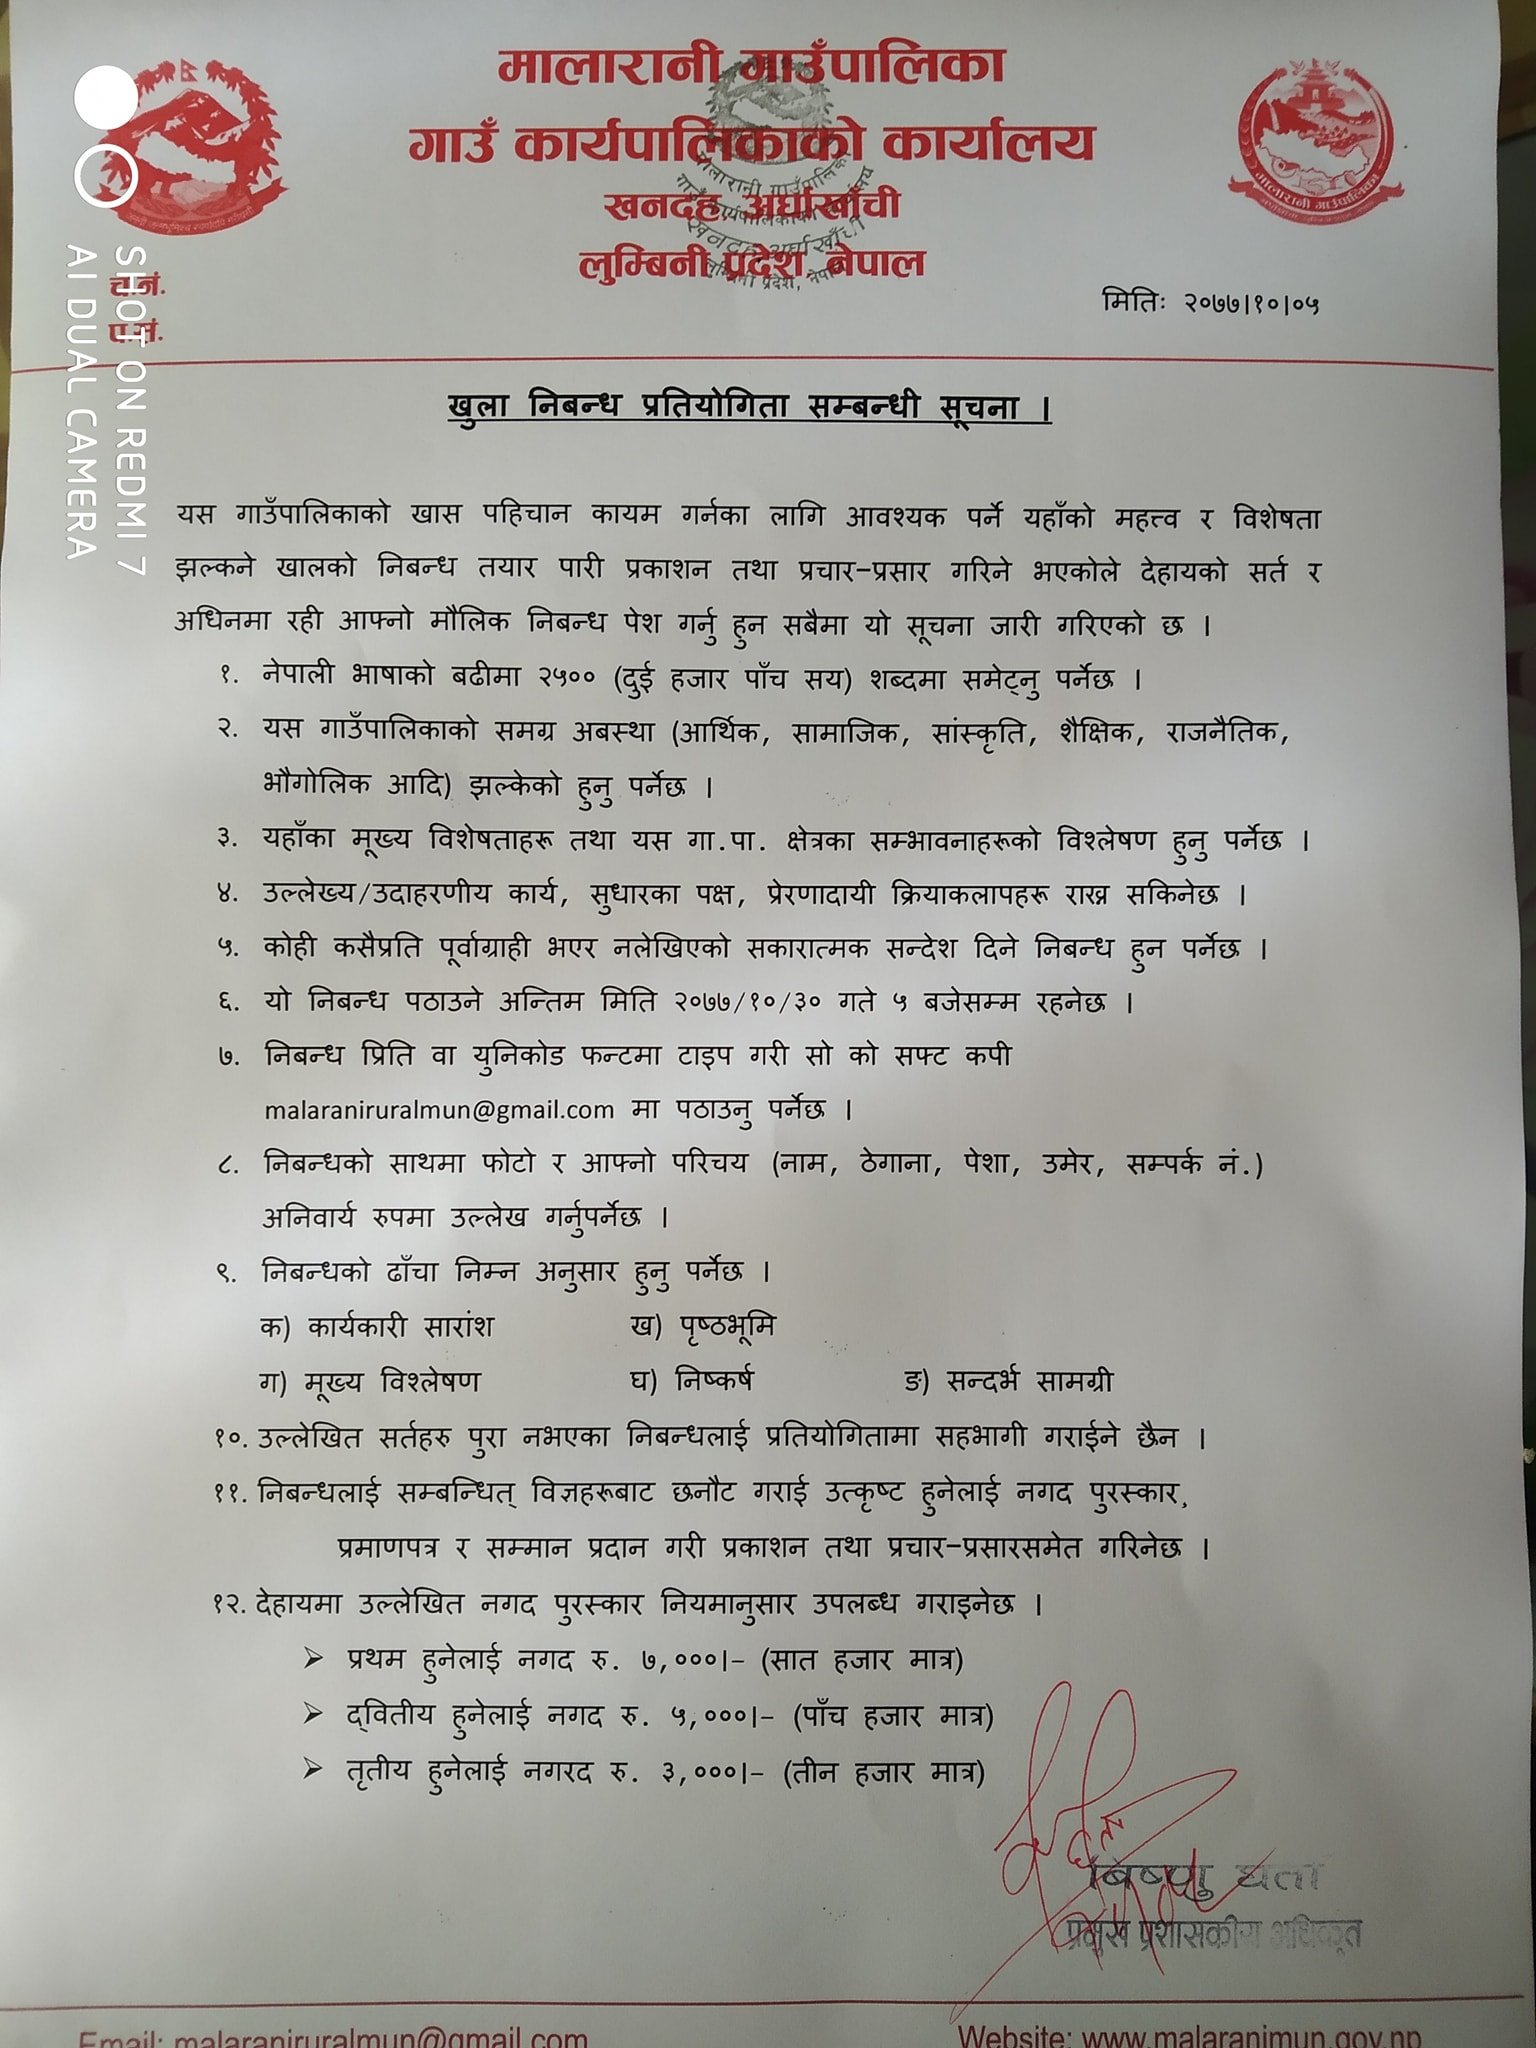 मालारानी गाउँपालिका
गाउँ कार्यपालिकाको कार्यालय
खनदह, अर्घाखाँची
लुम्बिनी प्रदेश, नेपाल
मालारानी गाउँपालिका
गाउँ कार्यपालिकाको कार्यालय
खनदह अर्घाखाँची
लुम्बिनी प्रदेश, नेपाल
मालारानी गाउँपालिका
च.नं.
प.सं.
SHOT ON REDMI 7
AI DUAL CAMERA
मितिः २०७७।१०।०५
खुला निबन्ध प्रतियोगिता सम्बन्धी सूचना ।
यस गाउँपालिकाको खास पहिचान कायम गर्नका लागि आवश्यक पर्ने यहाँको महत्त्व र विशेषता
झल्कने खालको निबन्ध तयार पारी प्रकाशन तथा प्रचार-प्रसार गरिने भएकोले देहायको सर्त र
अधिनमा रही आफ्नो मौलिक निबन्ध पेश गर्नु हुन सबैमा यो सूचना जारी गरिएको छ ।
१. नेपाली भाषाको बढीमा २५०० (दुई हजार पाँच सय) शब्दमा समेट्नु पर्नेछ ।
२. यस गाउँपालिकाको समग्र अबस्था (आर्थिक, सामाजिक, सांस्कृति, शैक्षिक, राजनैतिक,
भौगोलिक आदि) झल्केको हुनु पर्नेछ ।
३. यहाँका मूख्य विशेषताहरू तथा यस गा.पा. क्षेत्रका सम्भावनाहरूको विश्लेषण हुनु पर्नेछ ।
४. उल्लेख्य/उदाहरणीय कार्य, सुधारका पक्ष, प्रेरणादायी क्रियाकलापहरू राख्न सकिनेछ ।
५. कोही कसैप्रति पूर्वाग्राही भएर नलेखिएको सकारात्मक सन्देश दिने निबन्ध हुन पर्नेछ ।
६. यो निबन्ध पठाउने अन्तिम मिति २०७७/१०/३० गते ५ बजेसम्म रहनेछ ।
७. निबन्ध प्रिति वा युनिकोड फन्टमा टाइप गरी सो को सफ्ट कपी
malaraniruralmun@gmail.com मा पठाउनु पर्नेछ ।
८. निबन्धको साथमा फोटो र आफ्नो परिचय (नाम, ठेगाना, पेशा, उमेर, सम्पर्क नं.)
अनिवार्य रुपमा उल्लेख गर्नुपर्नेछ ।
९. निबन्धको ढाँचा निम्न अनुसार हुनु पर्नेछ ।
क) कार्यकारी सारांश ख) पृष्ठभूमि
ग) मूख्य विश्लेषण घ) निष्कर्ष ङ) सन्दर्भ सामग्री
१०. उल्लेखित सर्तहरु पुरा नभएका निबन्धलाई प्रतियोगितामा सहभागी गराईने छैन ।
११. निबन्धलाई सम्बन्धित् विज्ञहरूबाट छनौट गराई उत्कृष्ट हुनेलाई नगद पुरस्कार,
प्रमाणपत्र र सम्मान प्रदान गरी प्रकाशन तथा प्रचार-प्रसारसमेत गरिनेछ ।
१२. देहायमा उल्लेखित नगद पुरस्कार नियमानुसार उपलब्ध गराइनेछ ।
➢ प्रथम हुनेलाई नगद रु. ७,०००।- (सात हजार मात्र)
➢ द्वितीय हुनेलाई नगद रु. ५,०००।- (पाँच हजार मात्र)
➢ तृतीय हुनेलाई नगरद रु. ३,०००।- (तीन हजार मात्र)
बिष्णु
प्रमुख प्रशासकीय अधिकृत
Email: malaraniruralmun@gmail.com Website: www.malaranimun.gov.np